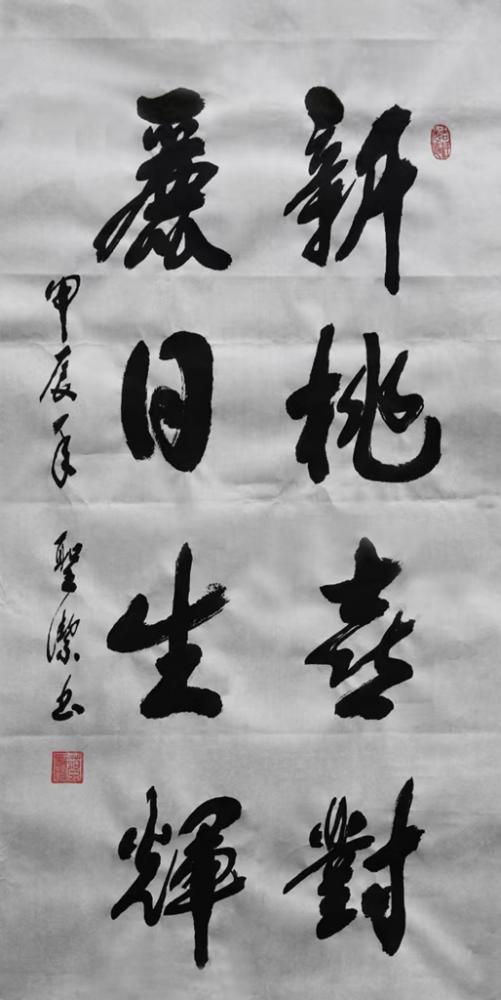 新桃喜對
麗日生輝
甲辰年 聖潔書